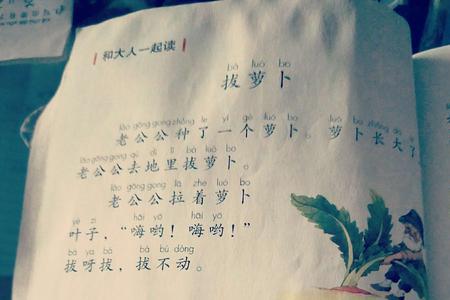 和大人一起读
bá luó bo
拔萝卜
lǎo gōng gong zhòng le yí gè luó bo luó bo zhǎng dà
老公公种了一个萝卜。萝卜长大了
lǎo gōng gong qù dì lǐ bá luó bo
老公公去地里拔萝卜。
lǎo gōng gong lā zhe luó bo
老公公拉着萝卜
yè zi hāi yō hāi yō
叶子，“嗨哟！嗨哟！”
bá ya bá bá bú dòng
拔呀拔，拔不动。